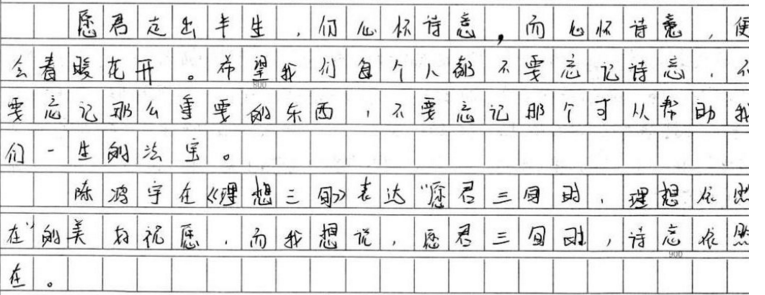 愿君走出半生，仍心怀诗意，而心怀诗意，便
会春暖花开。希望我们每个人都不要忘记诗意，不
800
要忘记那么重要的东西，不要忘记那个可以帮助我
们一生的法宝。
陈鸿宇在《理想三旬》表达“愿君三旬时，理想依然
在”的美好祝愿，而我想说，愿君三旬时，诗意依然
900
在。